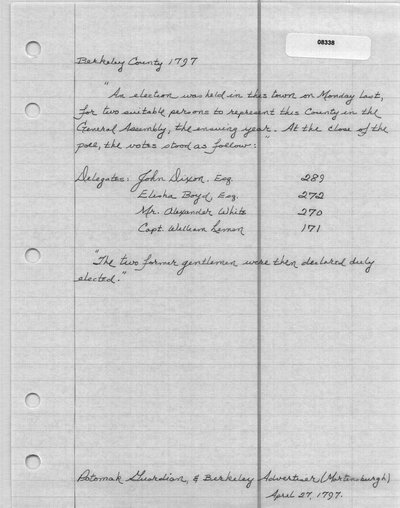 08338
Berkeley County 1797
"An election was held in this town on Monday last,
for two suitable persons to represent this County in the
General Assembly, the ensuing year. At the close of the
poll, the votes stood as follow:"
Delegates: John Dixon, Esq. 289
Elisha Boyd, Esq. 272
Mr. Alexander White 270
Capt. William Lemon 171
"The two former gentlemen were then declared duly
elected."
Potomak Guardian, & Berkeley Advertiser, (Martinsburgh)
April 27, 1797.